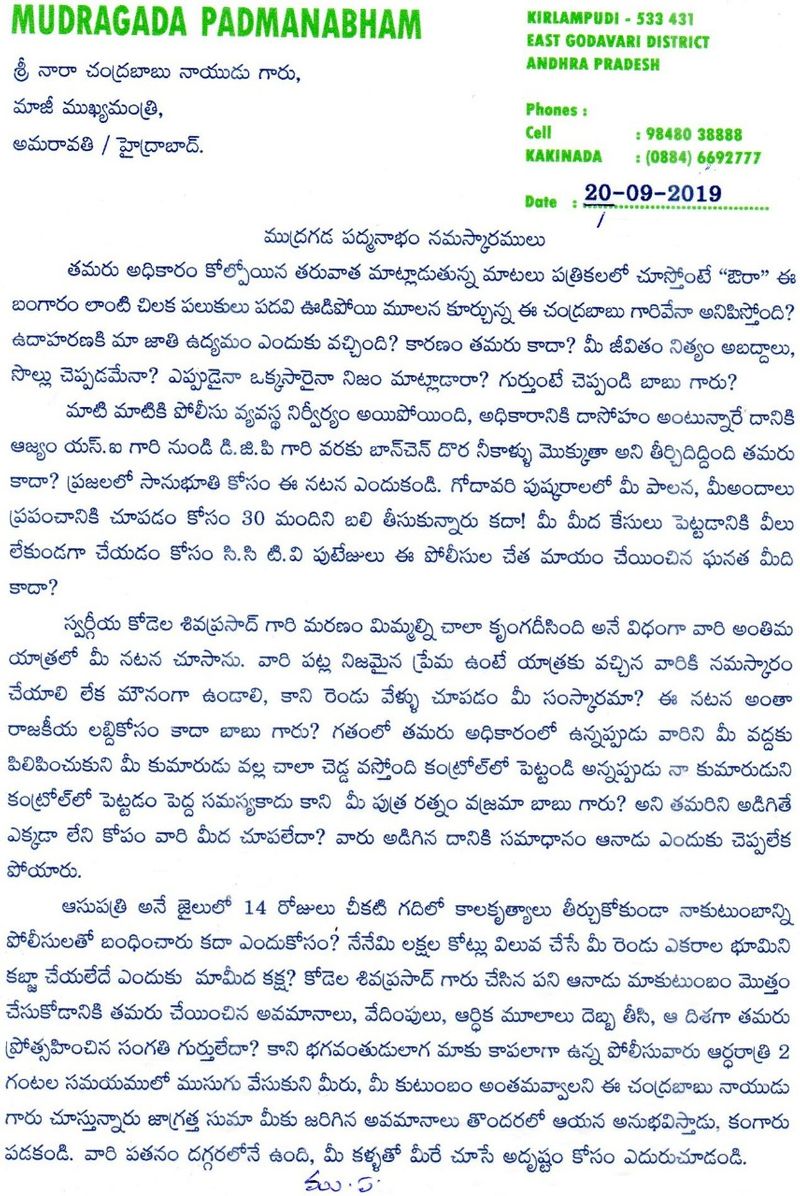 MUDRAGADA PADMANABHAM
KIRLAMPUDI - 533 431
EAST GODAVARI DISTRICT
ANDHRA PRADESH
Phones :
Cell : 98480 38888
KAKINADA : (0884) 6692777
Date : 20-09-2019
శ్రీ నారా చంద్రబాబు నాయుడు గారు,
మాజీ ముఖ్యమంత్రి,
అమరావతి / హైద్రాబాద్.
ముద్రగడ పద్మనాభం నమస్కారములు
తమరు అధికారం కోల్పోయిన తరువాత మాట్లాడుతున్న మాటలు పత్రికలలో చూస్తోంటే “ఔరా” ఈ
బంగారం లాంటి చిలక పలుకులు పదవి ఊడిపోయి మూలన కూర్చున్న ఈ చంద్రబాబు గారివేనా అనిపిస్తోంది?
ఉదాహరణకి మా జాతి ఉద్యమం ఎందుకు వచ్చింది? కారణం తమరు కాదా? మీ జీవితం నిత్యం అబద్దాలు,
సొల్లు చెప్పడమేనా? ఎప్పుడైనా ఒక్కసారైనా నిజం మాట్లాడారా? గుర్తుంటే చెప్పండి బాబు గారు?
మాటి మాటికి పోలీసు వ్యవస్థ నిర్వీర్యం అయిపోయింది, అధికారానికి దాసోహం అంటున్నారే దానికి
ఆజ్యం యస్.ఐ గారి నుండి డి.జి.పి గారి వరకు బాన్‌చెన్ దొర నీకాళ్ళు మొక్కుతా అని తీర్చిదిద్దింది తమరు
కాదా? ప్రజలలో సానుభూతి కోసం ఈ నటన ఎందుకండి. గోదావరి పుష్కరాలలో మీ పాలన, మీఅందాలు
ప్రపంచానికి చూపడం కోసం 30 మందిని బలి తీసుకున్నారు కదా! మీ మీద కేసులు పెట్టడానికి వీలు
లేకుండగా చేయడం కోసం సి.సి టి.వి పుటేజులు ఈ పోలీసుల చేత మాయం చేయించిన ఘనత మీది
కాదా?
స్వర్గీయ కోడెల శివప్రసాద్ గారి మరణం మిమ్మల్ని చాలా కృంగదీసింది అనే విధంగా వారి అంతిమ
యాత్రలో మీ నటన చూసాను. వారి పట్ల నిజమైన ప్రేమ ఉంటే యాత్రకు వచ్చిన వారికి నమస్కారం
చేయాలి లేక మౌనంగా ఉండాలి, కాని రెండు వేళ్ళు చూపడం మీ సంస్కారమా? ఈ నటన అంతా
రాజకీయ లబ్దికోసం కాదా బాబు గారు? గతంలో తమరు అధికారంలో ఉన్నప్పుడు వారిని మీ వద్దకు
పిలిపించుకుని మీ కుమారుడు వల్ల చాలా చెడ్డ వస్తోంది కంట్రోల్‌లో పెట్టండి అన్నప్పుడు నా కుమారుడుని
కంట్రోల్‌లో పెట్టడం పెద్ద సమస్యకాదు కాని మీ పుత్ర రత్నం వజ్రమా బాబు గారు? అని తమరిని అడిగితే
ఎక్కడా లేని కోపం వారి మీద చూపలేదా? వారు అడిగిన దానికి సమాధానం ఆనాడు ఎందుకు చెప్పలేక
పోయారు.
ఆసుపత్రి అనే జైలులో 14 రోజులు చీకటి గదిలో కాలకృత్యాలు తీర్చుకోకుండా నాకుటుంబాన్ని
పోలీసులతో బంధించారు కదా ఎందుకోసం? నేనేమి లక్షల కోట్లు విలువ చేసే మీ రెండు ఎకరాల భూమిని
కబ్జా చేయలేదే ఎందుకు మామీద కక్ష? కోడెల శివప్రసాద్ గారు చేసిన పని ఆనాడు మాకుటుంబం మొత్తం
చేసుకోడానికి తమరు చేయించిన అవమానాలు, వేదింపులు, ఆర్ధిక మూలాలు దెబ్బ తీసి, ఆ దిశగా తమరు
ప్రోత్సహించిన సంగతి గుర్తులేదా? కాని భగవంతుడులాగ మాకు కాపలాగా ఉన్న పోలీసువారు ఆర్ధరాత్రి 2
గంటల సమయములో ముసుగు వేసుకుని మీరు, మీ కుటుంబం అంతమవ్వాలని ఈ చంద్రబాబు నాయుడు
గారు చూస్తున్నారు జాగ్రత్త సుమా మీకు జరిగిన అవమానాలు తొందరలో ఆయన అనుభవిస్తాడు, కంగారు
పడకండి. వారి పతనం దగ్గరలోనే ఉంది, మీ కళ్ళతో మీరే చూసే అదృష్టం కోసం ఎదురుచూడండి.